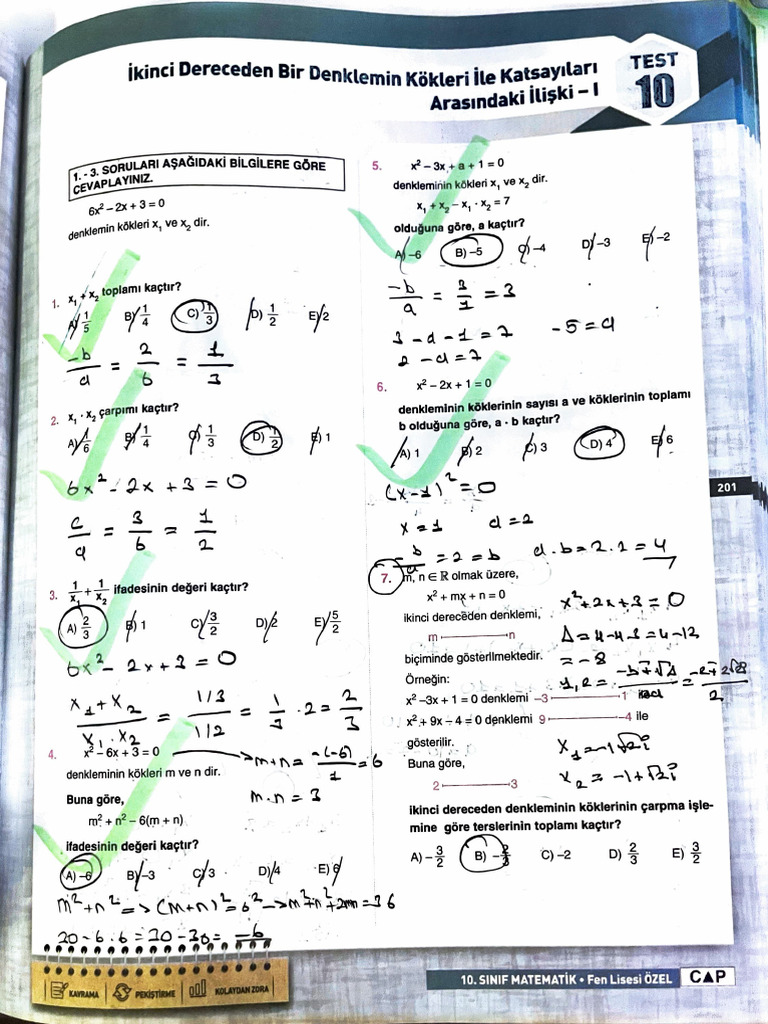 İkinci Dereceden Bir Denklemin Kökleri İle Katsayıları
Arasındaki İlişki – I
TEST
10
1. - 3. SORULARI AŞAĞIDAKİ BİLGİLERE GÖRE
CEVAPLAYINIZ.
6x² – 2x + 3 = 0
denklemin kökleri x₁ ve x₂ dir.
1. x₁ + x₂ toplamı kaçtır?
A) 1/5 B) 1/4 C) 1/3 D) 1/2 E) 2
-b/a = 2/6 = 1/3
2. x₁ · x₂ çarpımı kaçtır?
A) 1/6 B) 1/4 C) 1/3 D) 1/2 E) 1
6x² - 2x + 3 = 0
c/a = 3/6 = 1/2
3. 1/x₁ + 1/x₂ ifadesinin değeri kaçtır?
A) 2/3 B) 1 C) 3/2 D) 2 E) 5/2
6x² - 2x + 3 = 0
x₁ + x₂ / x₁ . x₂ = 1/3 / 1/2 = 1/3 . 2 = 2/3
4. x² – 6x + 3 = 0
m+n = -(-6)/1 = 6
denkleminin kökleri m ve n dir.
m.n = 3
Buna göre,
m² + n² – 6(m + n)
ifadesinin değeri kaçtır?
A) –6 B) –3 C) 3 D) 4 E) 6
m² + n² => (m+n)² = 6² -> m² + n² + 2mn = 36
30 - 36 = -6
5. x² – 3x + a + 1 = 0
denkleminin kökleri x₁ ve x₂ dir.
x₁ + x₂ – x₁ · x₂ = 7
olduğuna göre, a kaçtır?
A) –6 B) –5 C) –4 D) –3 E) –2
-b/a = 3/1 = 3
3 - a - 1 = 7 -5 = a
2 - a = 7
6. x² – 2x + 1 = 0
denkleminin köklerinin sayısı a ve köklerinin toplamı
b olduğuna göre, a · b kaçtır?
A) 1 B) 2 C) 3 D) 4 E) 6
(x-1)² = 0
x = 1 a = 2
-b/a = 2 = b a.b = 2.2 = 4
7. m, n ∈ ℝ olmak üzere,
x² + mx + n = 0
ikinci dereceden denklemi,
m n
biçiminde gösterilmektedir.
Örneğin:
x² –3x + 1 = 0 denklemi –3 1 ile
x² + 9x – 4 = 0 denklemi 9 –4 ile
gösterilir.
Buna göre,
2 3
ikinci dereceden denkleminin köklerinin çarpma işle-
mine göre terslerinin toplamı kaçtır?
A) –3/2 B) –2/3 C) –2 D) 2/3 E) 3/2
x² + 2x + 3 = 0
Δ = 4 - 4.3 = 4 - 12
= -8
x₂ = -1+√2i
201
KAVRAMA
PEKİŞTİRME
KOLAYDAN ZORA
10. SINIF MATEMATİK • Fen Lisesi ÖZEL
CAP